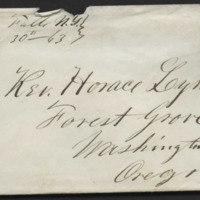 Falls N.Y.
30" 63
Rev. Horace Lym
Forest Grove
Washingto
Oreg